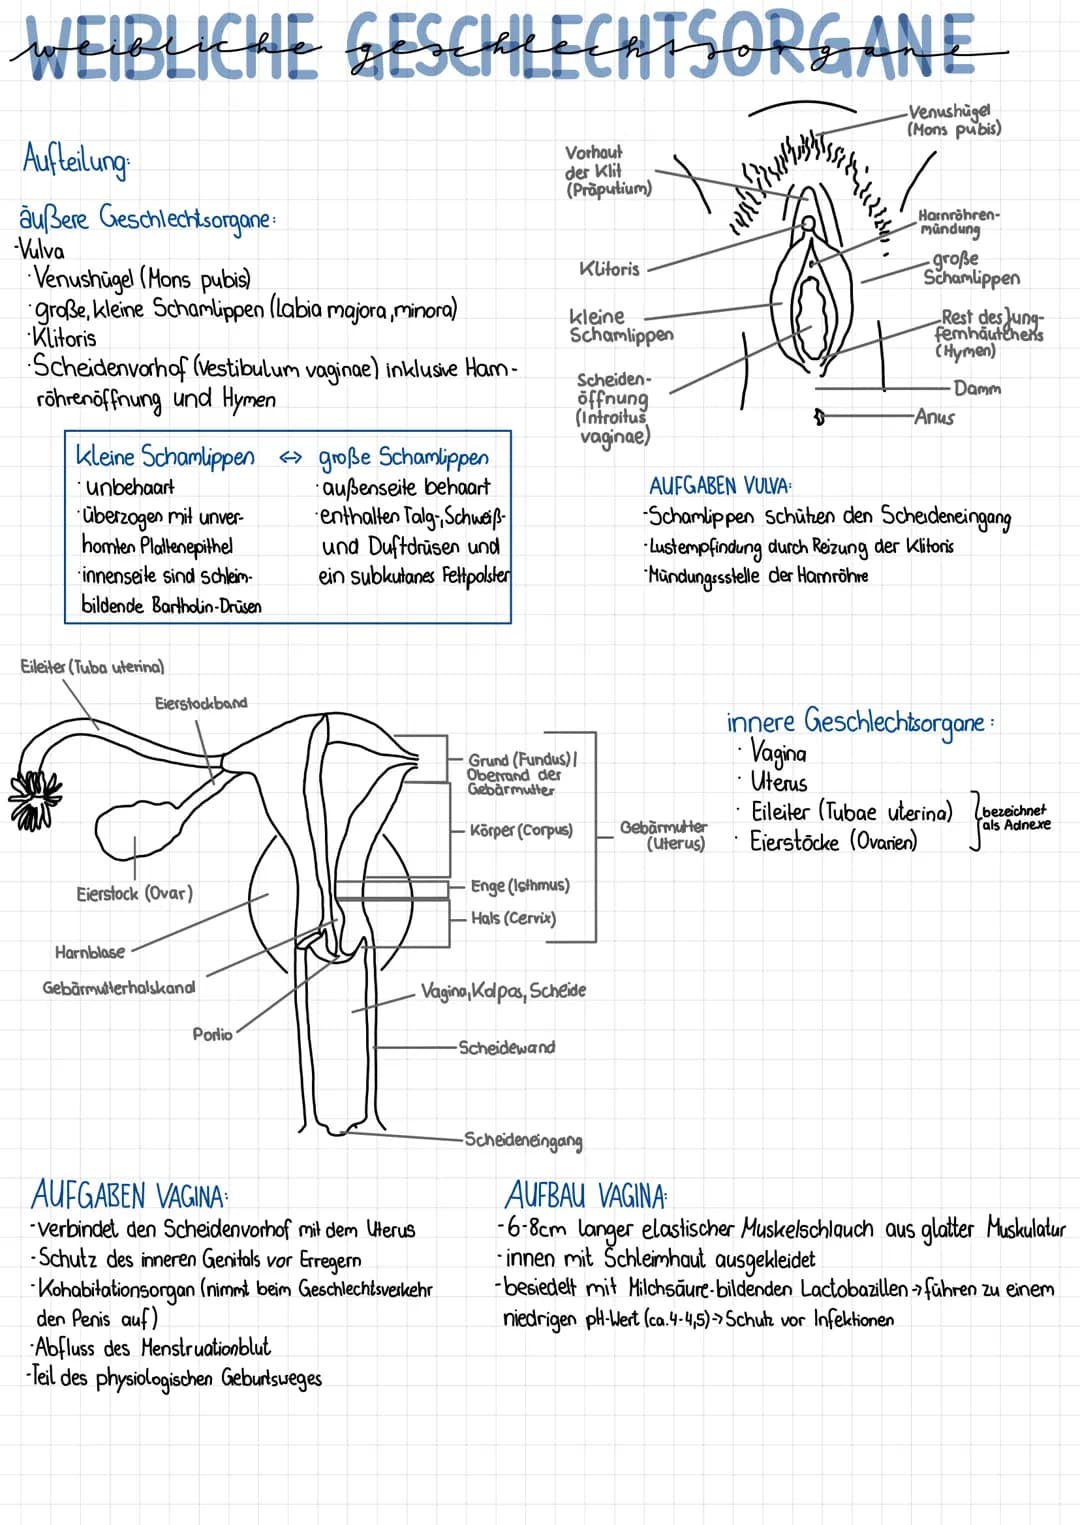 WEIBLICHE GESCHLECHTSORGANE
weibliche geschlechtsorgane
Aufteilung:
äußere Geschlechtsorgane:
-Vulva
·Venushügel (Mons pubis)
·große, kleine Schamlippen (labia majora, minora)
·Klitoris
·Scheidenvorhof (Vestibulum vaginae) inklusive Harn-
röhrenöffnung und Hymen
Vorhaut
der Klit
(Präputium)
Klitoris
kleine
Schamlippen
Scheiden-
öffnung
(Introitus
vaginae)
Venushügel
(Mons pubis)
Harnröhren-
mündung
große
Schamlippen
Rest des Jung-
fernhäutchens
(Hymen)
Damm
Anus
kleine Schamlippen ↔ große Schamlippen
·unbehaart
·überzogen mit unver-
hornten Plattenepithel
·innenseite sind schleim-
bildende Bartholin-Drüsen
·außenseite behaart
·enthalten Talg-, Schweiß-
und Duftdrüsen und
ein subkutanes Fettpolster
AUFGABEN VULVA:
-Schamlippen schützen den Scheideneingang
·Lustempfindung durch Reizung der Klitoris
·Mündungsstelle der Harnröhre
Eileiter (Tuba uterina)
Eierstockband
Eierstock (Ovar)
Harnblase
Gebärmutterhalskanal
Portio
Grund (Fundus) |
Oberrand der
Gebärmutter
Körper (Corpus)
Enge (Isthmus)
Hals (Cervix)
Gebärmutter
(Uterus)
Vagina, Kolpos, Scheide
Scheidewand
Scheideneingang
innere Geschlechtsorgane:
· Vagina
· Uterus
· Eileiter (Tubae uterina)
· Eierstöcke (Ovarien)
bezeichnet
als Adnexe
AUFGABEN VAGINA:
-verbindet den Scheidenvorhof mit dem Uterus
-Schutz des inneren Genitals vor Erregern
-Kohabitationsorgan (nimmt beim Geschlechtsverkehr
den Penis auf)
·Abfluss des Menstruationblut
-Teil des physiologischen Geburtsweges
AUFBAU VAGINA:
-6-8cm langer elastischer Muskelschlauch aus glatter Muskulatur
-innen mit Schleimhaut ausgekleidet
-besiedelt mit Milchsäure-bildenden Lactobazillen → führen zu einem
niedrigen pH-Wert (ca. 4-4,5) → Schutz vor Infektionen